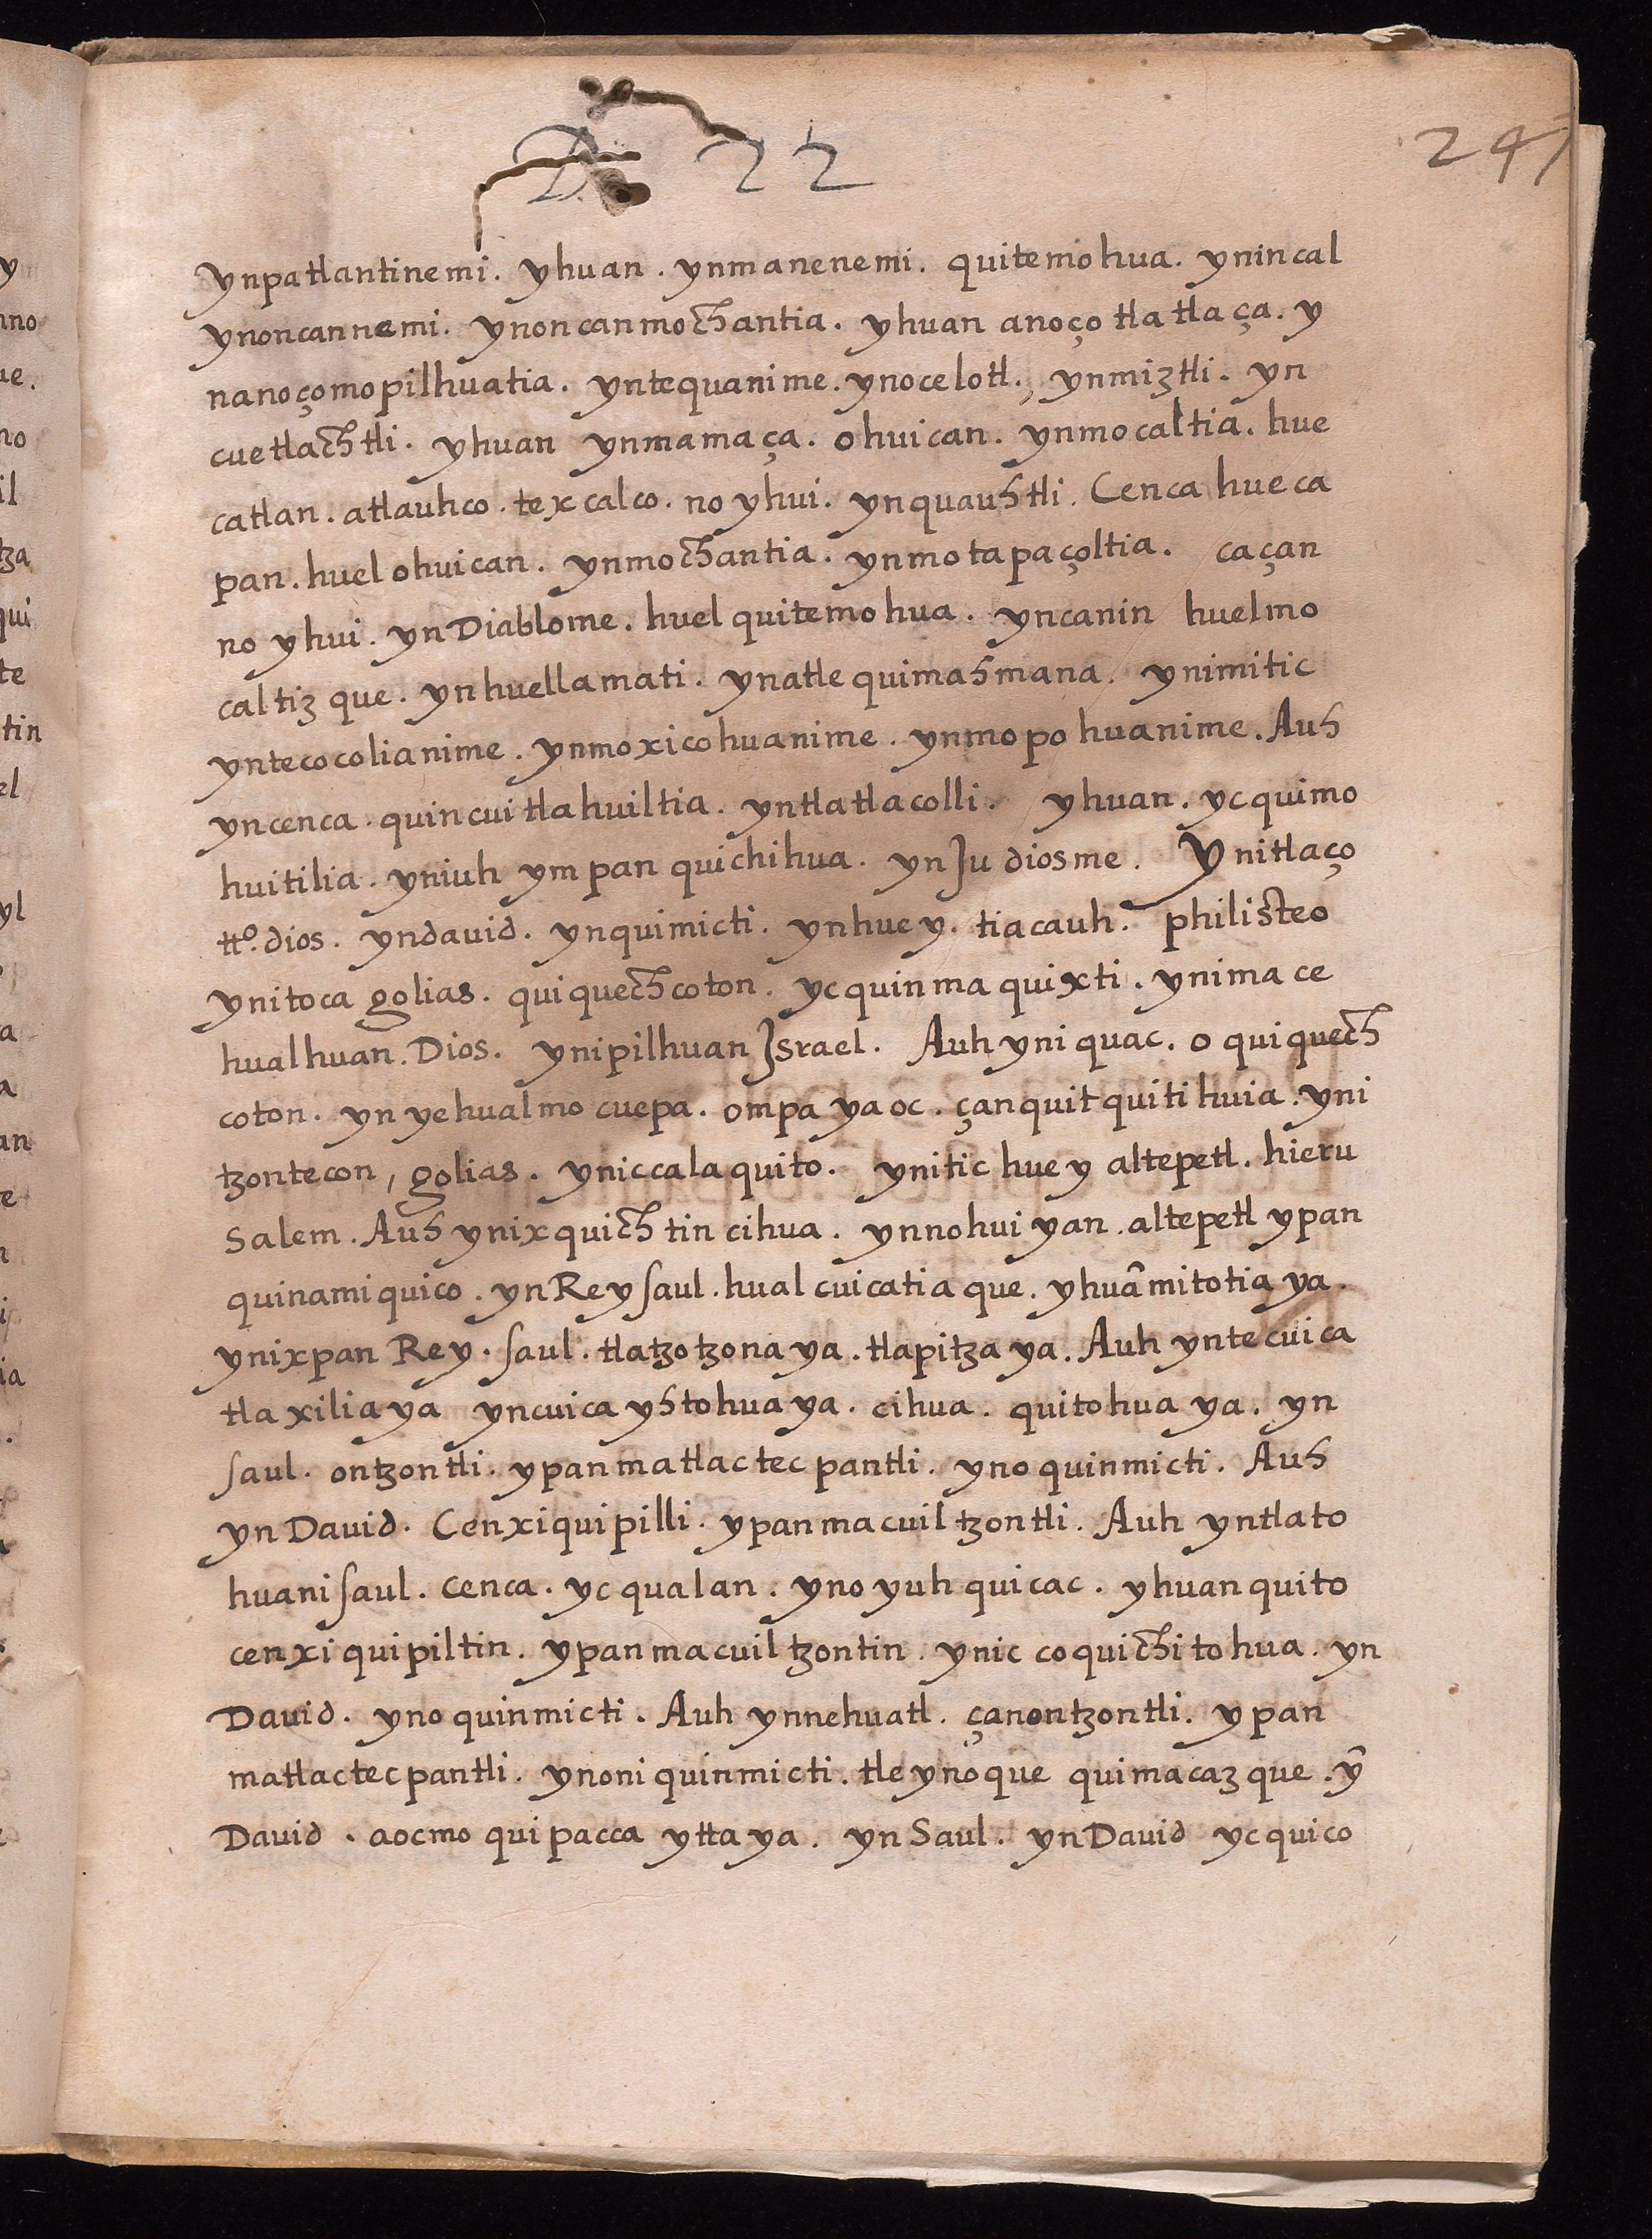 22
247
ynpatlantinemi. yhuan. ynmanenemi. quitemohua. ynincal
ynoncannemi. ynoncanmochantia. yhuan anoço tlatlaça. y
nanoçomopilhuatia. yntequanime. ynocelotl. ynmiztli. yn
cuetlachtli. yhuan ynmamaça. ohuican. ynmocaltia. hue
catlan. atlauhco. texcalco. no yhui. ynquauhtli. Cenca hueca
pan. huel ohuican. ynmochantia. ynmotapaçoltia. caçan
no yhui. ynDiablome. huel quitemohua. yncanin huelmo
caltiz que. ynhuellamati. ynatle quimahmana. ynimitic
yntecocolianime. ynmoxicohuanime. ynmopohuanime. Auh
yncenca quincuitlahuiltia. yntlatlacolli. yhuan. ycquimo
huitilia. yniuh ympan quichihua. ynJudiosme. Ynitlaço
tto. dios. yndauid. ynquimicti. ynhuey. tiacauh. philisteo
ynitoca golias. quiquechcoton. ycquinmaquixti. ynimace
hualhuan. Dios. ynipilhuan Israel. Auh yniquac. o quiquech
coton. yn yehualmocuepa. ompa yaoc. çanquitquitihuia. yni
tzontecon, golias. yniccalaquito. ynitic huey altepetl. hieru
Salem. Auh ynixquichtin cihua. ynnohuiyan. altepetl ypan
quinamiquico. ynRey saul. hualcuicatiaque. yhuã mitotiaya.
ynixpan Rey. saul. tlatzotzonaya. tlapitzaya. Auh yntecuica
tlaxiliaya yncuica yhtohuaya. cihua. quitohuaya. yn
saul. ontzontli. ypanmatlactecpantli. ynoquinmicti. Auh
yn Dauid. Cenxiquipilli. ypanmacuiltzontli. Auh yntlato
huani saul. cenca. yc qualan. yno yuh quicac. yhuan quito
cenxiquipiltin. ypanmacuiltzontin. ynic coquichitohua. yn
Dauid. yno quinmicti. Auh ynnehuatl. çanontzontli. ypan
matlactecpantli. ynoniquinmicti. tleynoque quimacazque. yˉ
Dauid. aocmo quipacca yttaya. yn Saul. ynDauid yc quico